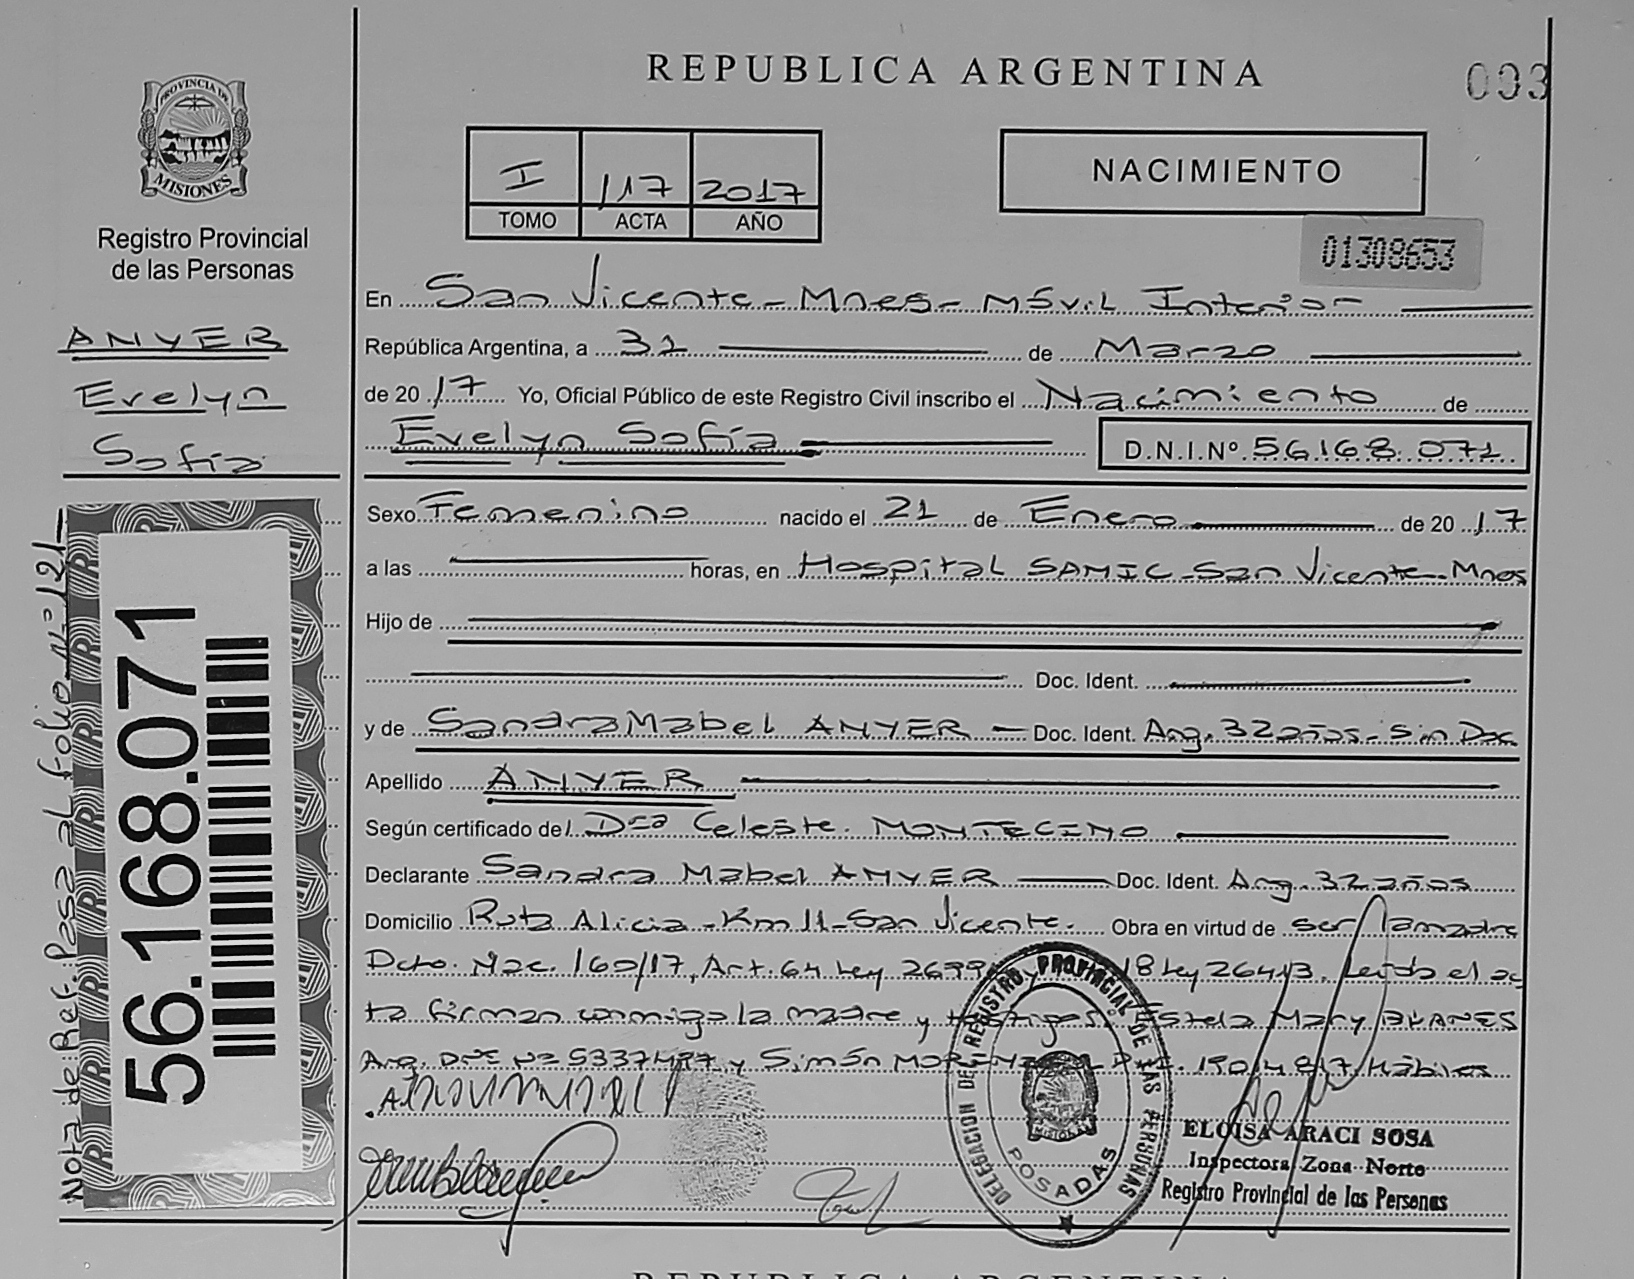 REPUBLICA ARGENTINA
093
PROVINCIA DE
MISIONES
Registro Provincial
de las Personas
I 117 2017
TOMO ACTA AÑO
NACIMIENTO
01308653
ANYER
Evelyn
Sofía
En San Vicente - Mnes - Móvil Interior
República Argentina, a 31 de Marzo
de 2017 Yo, Oficial Público de este Registro Civil inscribo el Nacimiento de
Evelyn Sofía D.N.I.Nº 56.168.071
Sexo Femenino nacido el 21 de Enero de 2017
a las horas, en Hospital SAMIC - San Vicente - Mnes
Hijo de
Doc. Ident.
y de Sandra Mabel ANYER - Doc. Ident. Arg. 32 años - Sin Doc
Apellido ANYER
Según certificado del Dra Celeste MONTECINO
Declarante Sandra Mabel ANYER Doc. Ident. Arg. 32 años
Domicilio Ruta Alicia - Km 11 - San Vicente. Obra en virtud de ser la madre
Dcto. Nac. 160/17, Art. 64 Ley 18 Ley 26413. Leída el ac
ta firman conmigo la madre y Mary
Arg. y Simón Hábiles
Nota de Ref: Pasa al folio Nº 121
56.168.071
DELEGACION DEL REGISTRO PROVINCIAL DE LAS PERSONAS
POSADAS
ELOISA ARACI SOSA
Inspectora Zona Norte
Registro Provincial de las Personas
REPUBLICA ARGENTINA